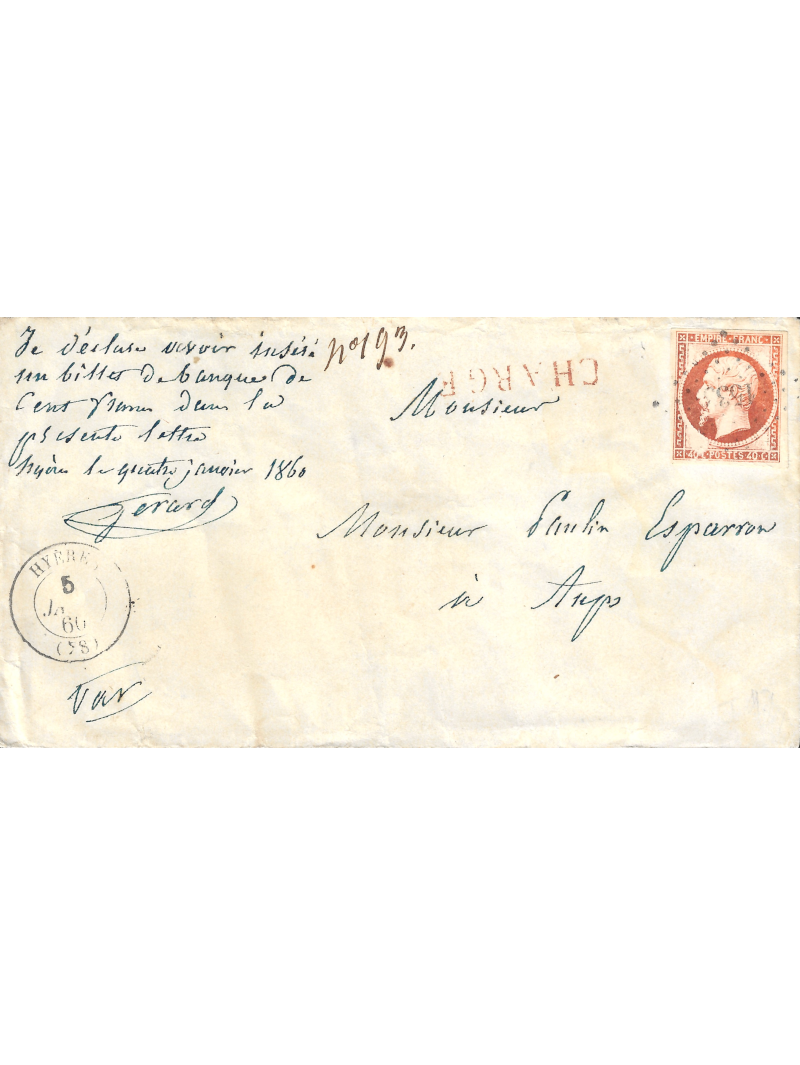 Je déclare avoir inséré
un billet de banque de
Cent francs dans la
présente lettre
hyères le quatre janvier 1860
Gerard
no 193.
CHARGE
Monsieur
EMPIRE FRANC
40 C POSTES 40 C
Monsieur Paulin Esparron
à Aups
HYÈRE
5
JA
60
(78)
Var